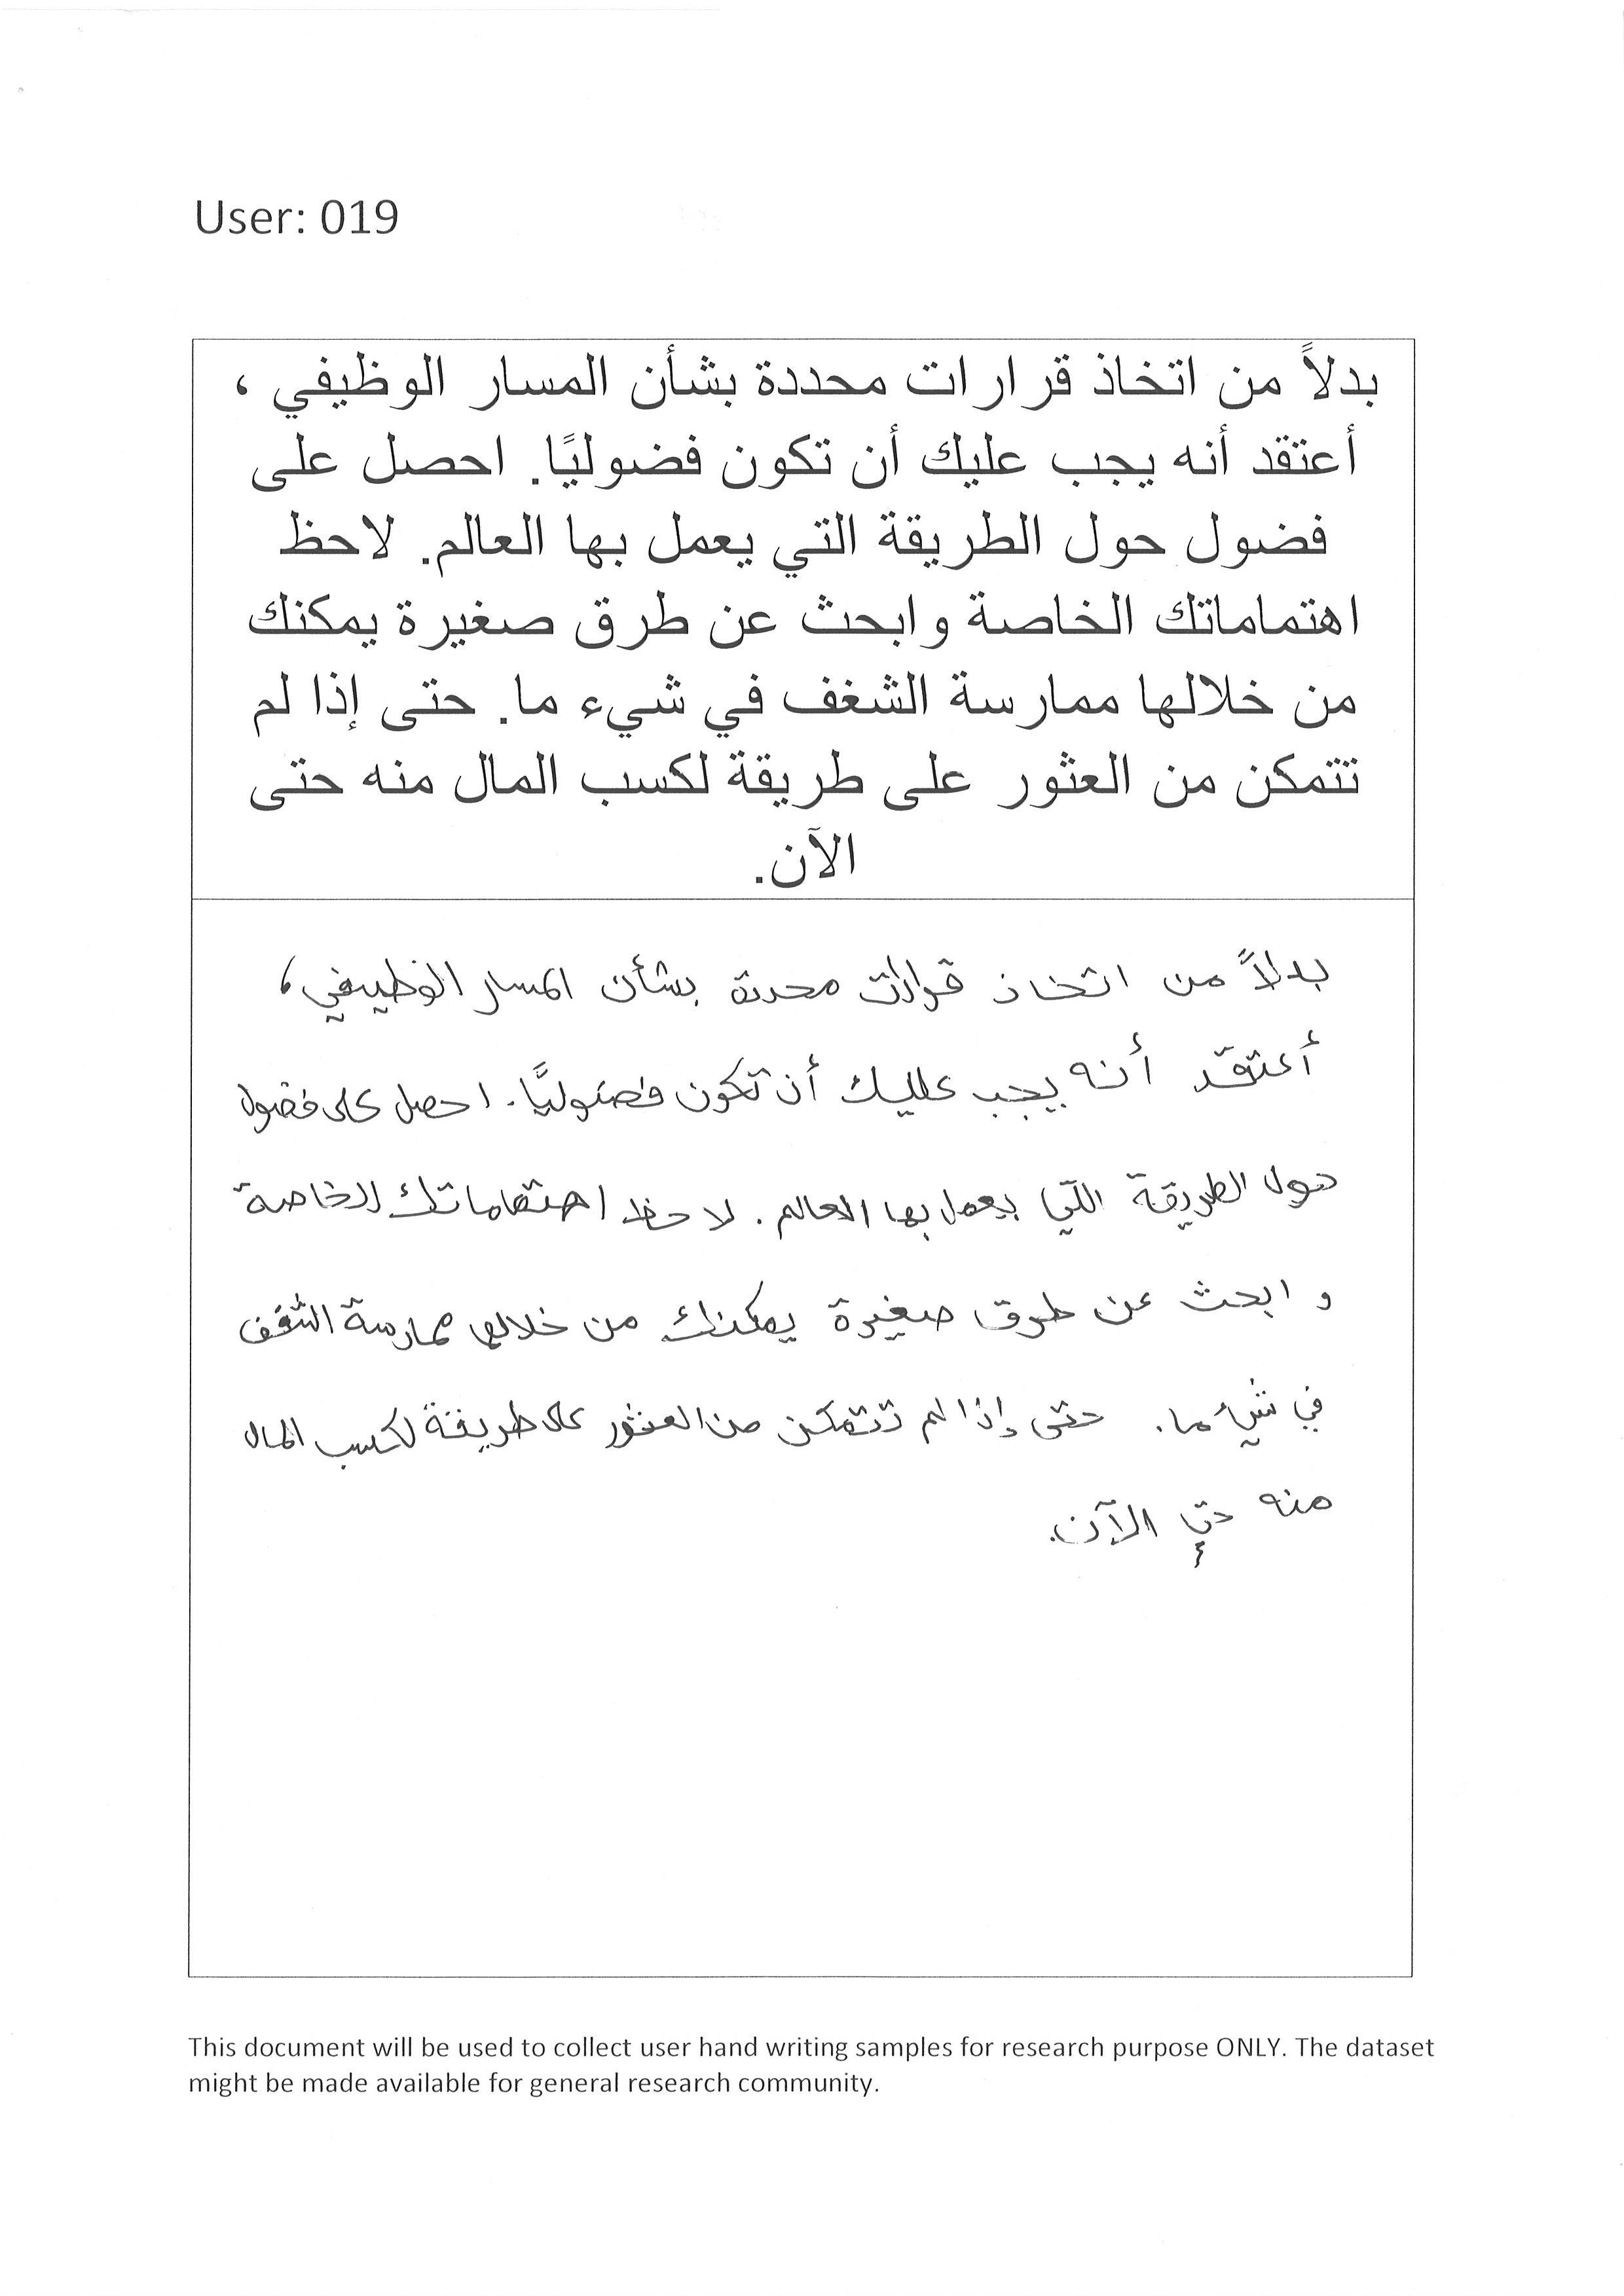 User: 019
بدلاً من اتخاذ قرارات محددة بشأن المسار الوظيفي ،
أعتقد أنه يجب عليك أن تكون فضوليًا. احصل على
فضول حول الطريقة التي يعمل بها العالم. لاحظ
اهتماماتك الخاصة وابحث عن طرق صغيرة يمكنك
من خلالها ممارسة الشغف في شيء ما. حتى إذا لم
تتمكن من العثور على طريقة لكسب المال منه حتى
الآن.
بدلاً من اتخاذ قرارات محددة بشأن المسار الوظيفي،
أعتقد أنه يجب عليك أن تكون فضوليًا. احصل على فضول
حول الطريقة التي يعمل بها العالم. لاحظ اهتماماتك الخاصة
و ابحث عن طرق صغيرة يمكنك من خلالها ممارسة الشغف
في شيء ما. حتى إذا لم تتمكن من العثور على طريقة لكسب المال
منه حتى الآن.
This document will be used to collect user hand writing samples for research purpose ONLY. The dataset
might be made available for general research community.